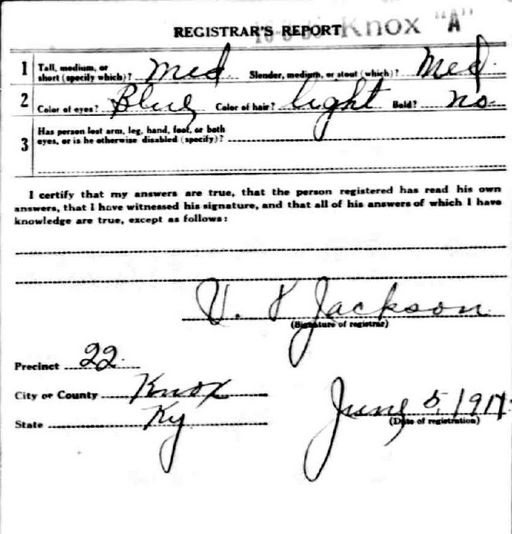 REGISTRAR'S REPORT Knox "A"
1 Tall, medium, or short (specify which)? Med Slender, medium, or stout (which)? Med
2 Color of eyes? Blue Color of hair? light Bald? no
3 Has person lost arm, leg, hand, foot, or both eyes, or is he otherwise disabled (specify)?
I certify that my answers are true, that the person registered has read his own
answers, that I have witnessed his signature, and that all of his answers of which I have
knowledge are true, except as follows:
Jackson
(Signature of registrar)
Precinct 22
City or County Knox
State Ky
June 5, 1917
(Date of registration)